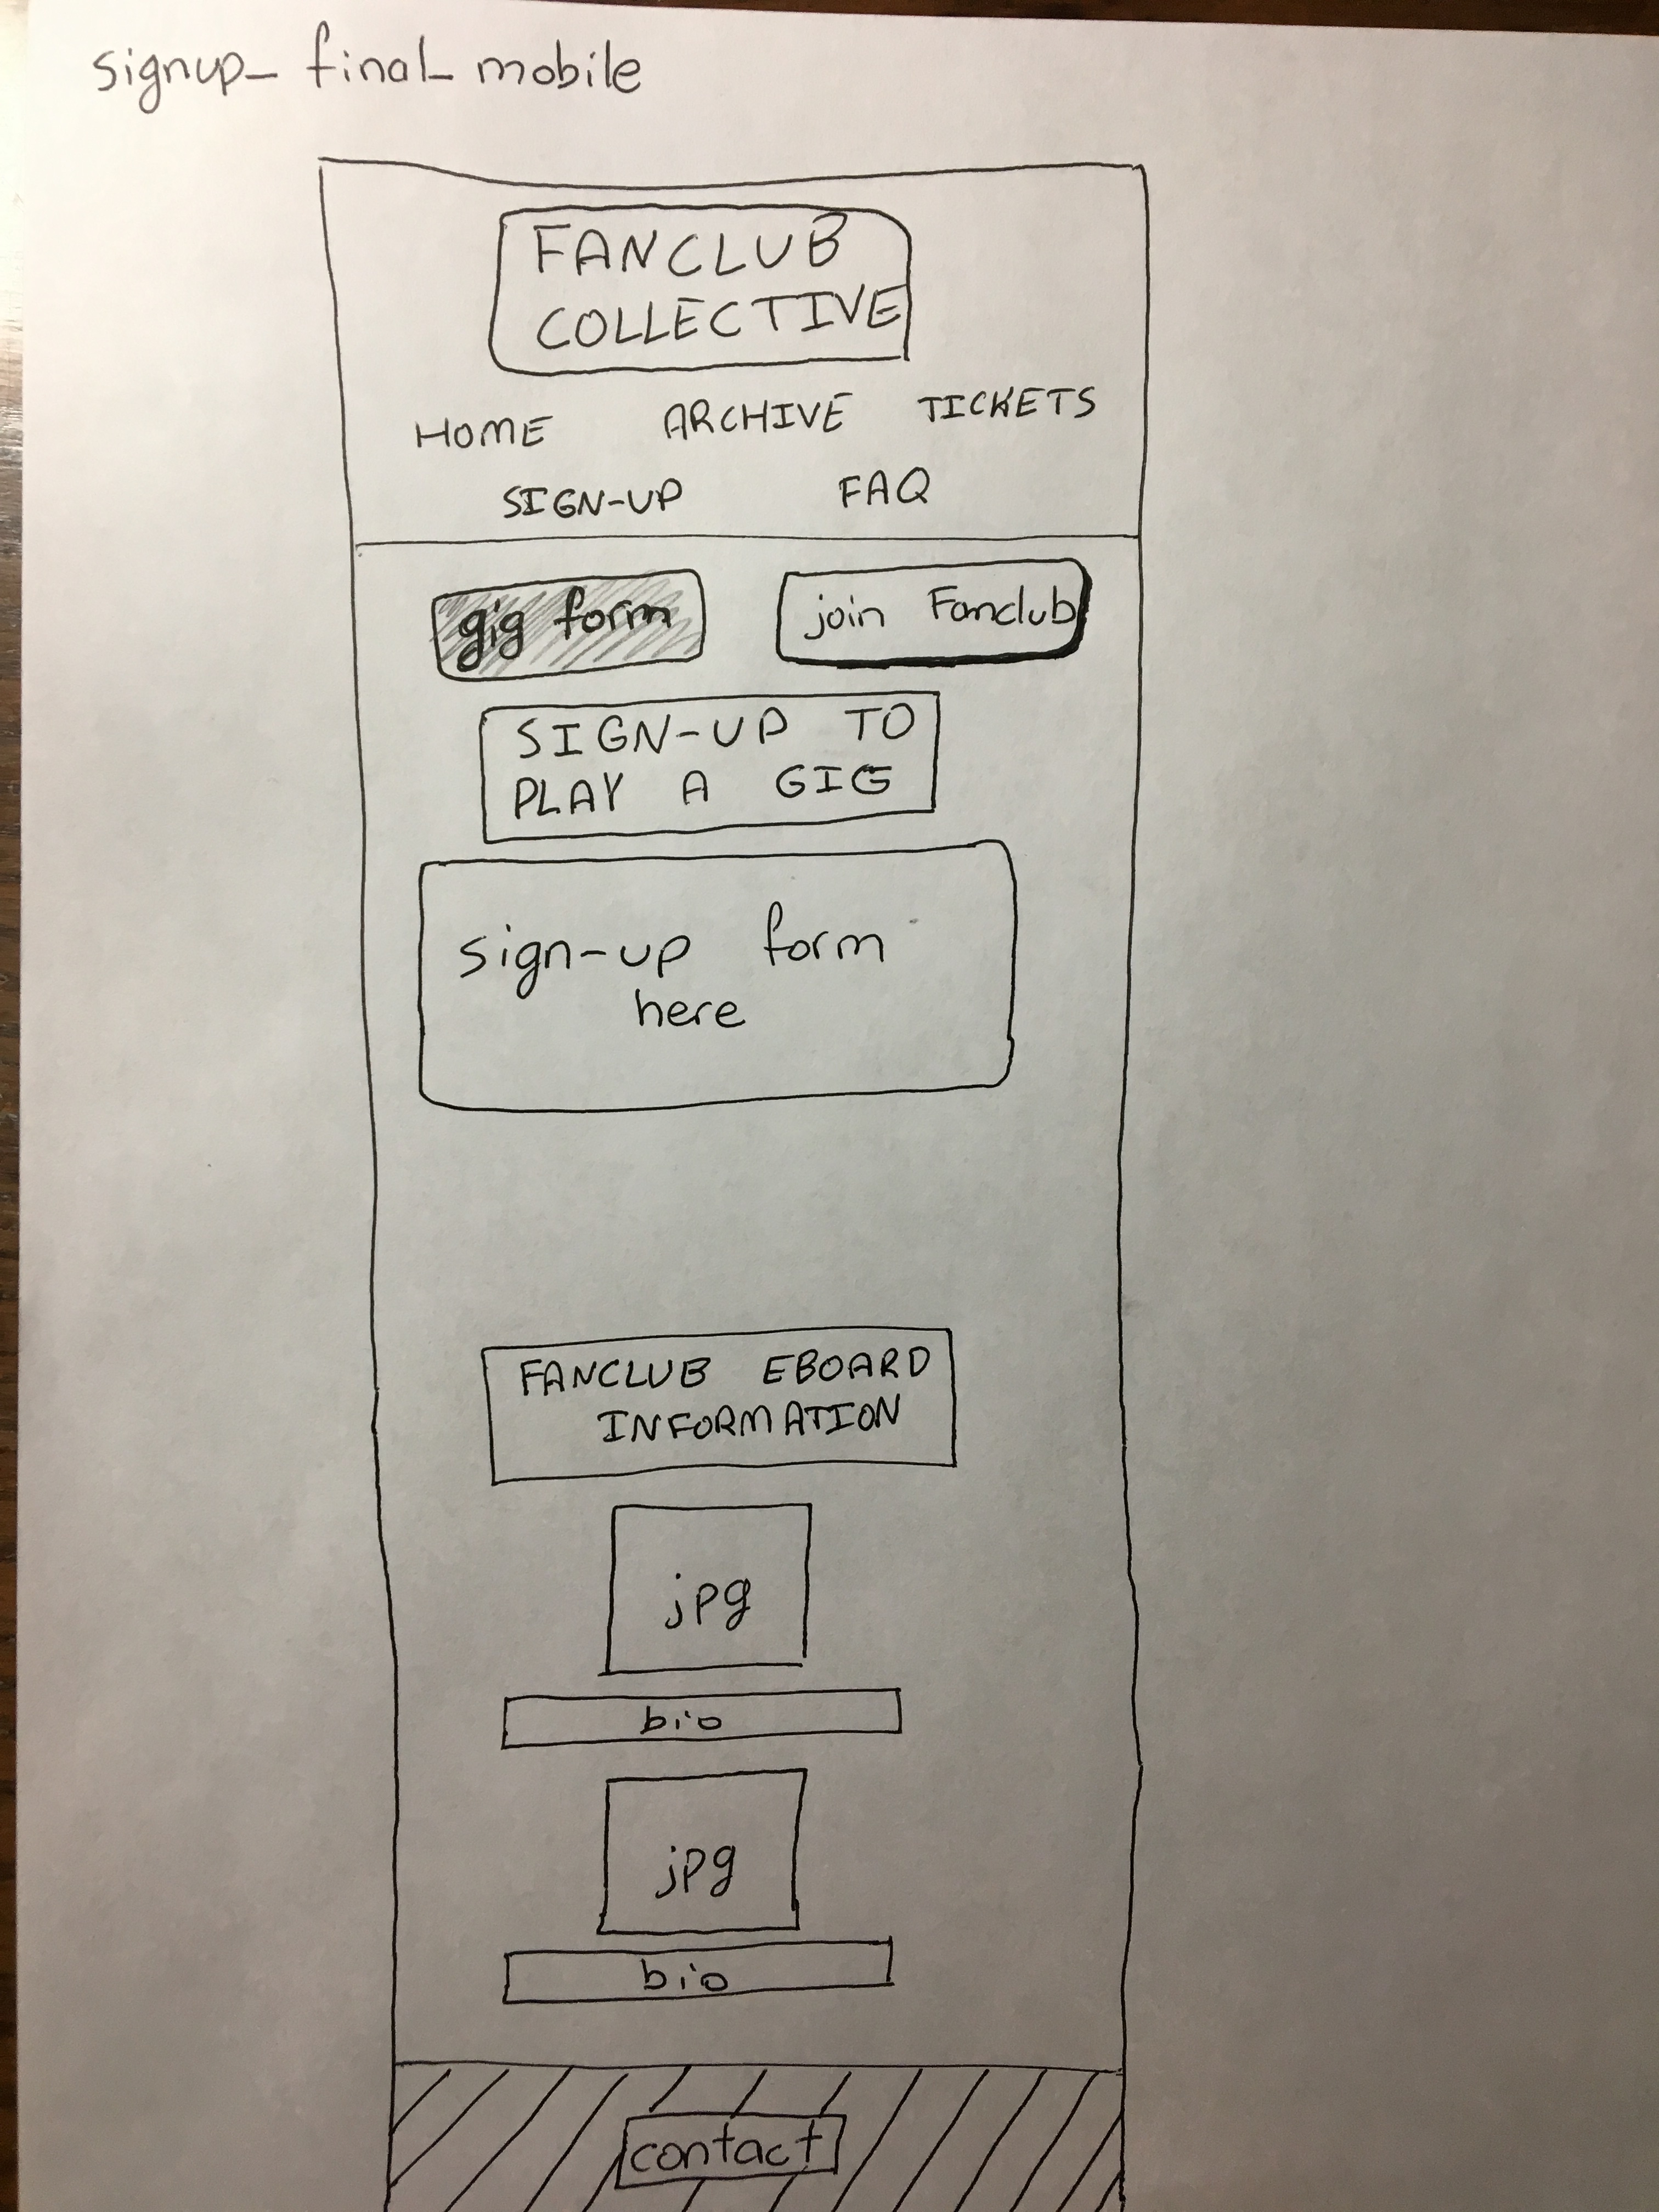 signup_final_mobile
FANCLUB
COLLECTIVE
HOME ARCHIVE TICKETS
SIGN-UP FAQ
gig form join Fanclub
SIGN-UP TO
PLAY A GIG
sign-up form
here
FANCLUB EBOARD
INFORMATION
jpg
bio
jpg
bio
contact